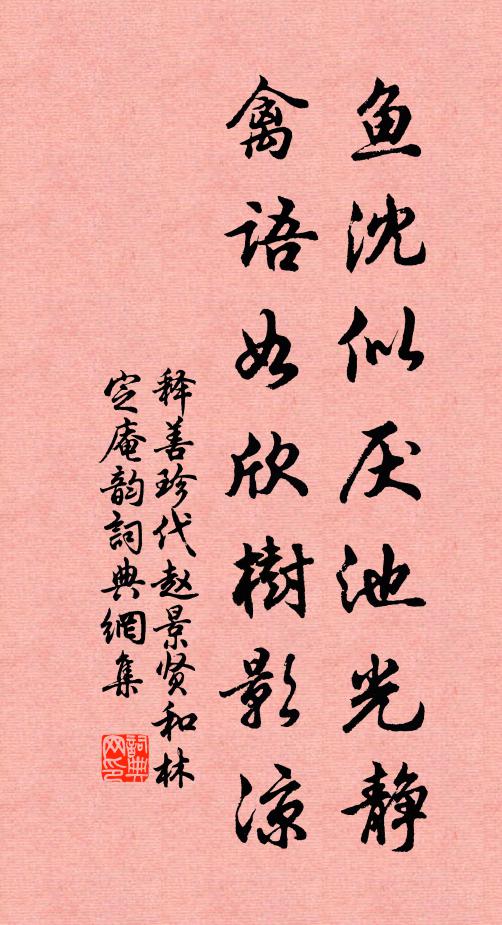 鱼沈似厌池光静
禽语如欣樹影凉
释善珍代赵景贤和林
定庵韵詞典網集
詞典网印